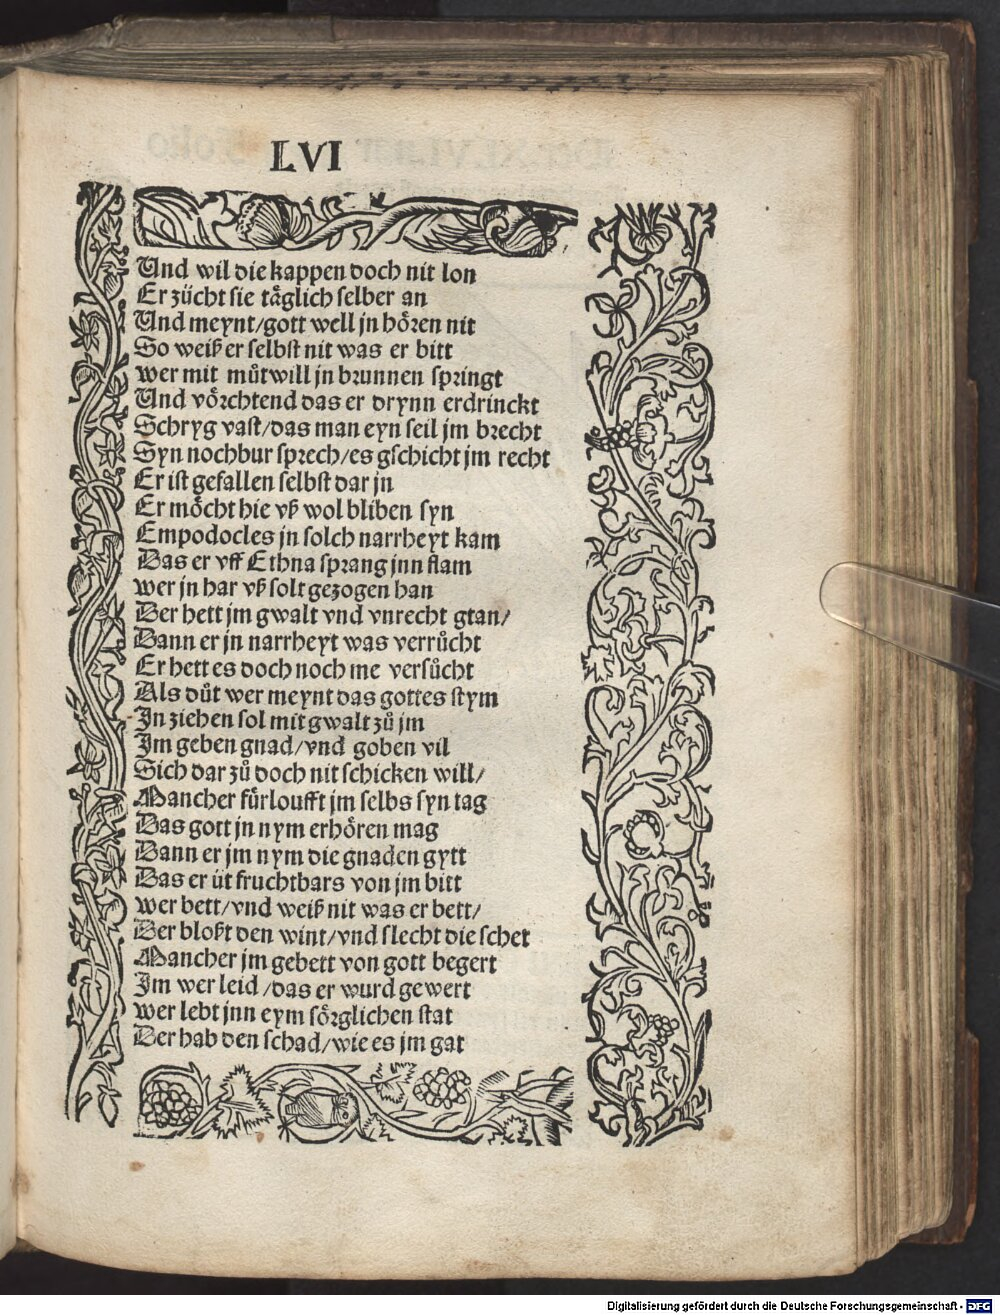 LVI
Und wil die kappen doch nit lon
Er zücht sie täglich selber an
Und meynt/gott well jn hören nit
So weiß er selbst nit was er bitt
wer mit můtwill jn brunnen springt
Und vörchtend das er drynn erdrinckt
Schryg vast/das man eyn seil jm brecht
Syn nochbur sprech/es gschicht jm recht
Er ist gefallen selbst dar jn
Er möcht hie vß wol bliben syn
Empodocles jn solch narrheyt kam
Das er vff Ethna sprang jnn flam
wer jn har vß solt gezogen han
Der hett jm gwalt vnd vnrecht gtan/
Dann er jn narrheyt was verrůcht
Er hett es doch noch me versůcht
Als důt wer meynt das gottes stym
In ziehen sol mit gwalt zů jm
Im geben gnad/vnd goben vil
Sich dar zů doch nit schicken will/
Mancher fürloufft jm selbs syn tag
Das gott jn nym erhören mag
Dann er jm nym die gnaden gytt
Das er üt fruchtbars von jm bitt
wer bett/vnd weiß nit was er bett/
Der bloßt den wint/vnd slecht die schet
Mancher jm gebett von gott begert
Im wer leid/das er wurd gewert
wer lebt jnn eym sörglichen stat
Der hab den schad/wie es jm gat
Digitalisierung gefördert durch die Deutsche Forschungsgemeinschaft - DFG